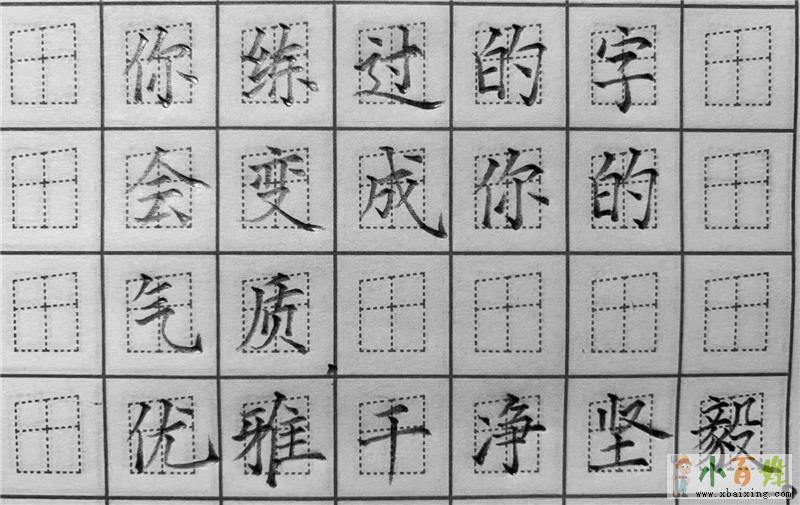 你练过的字
会变成你的
气质
优雅干净坚毅
小百姓
www.xbaixing.com